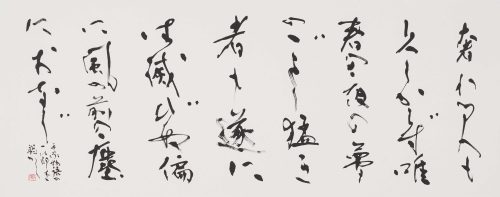 奢れる人も
久しからず唯
春の夜の夢
のごとし猛き
者も遂に
は滅びぬ偏
に風の前の塵
におなじ